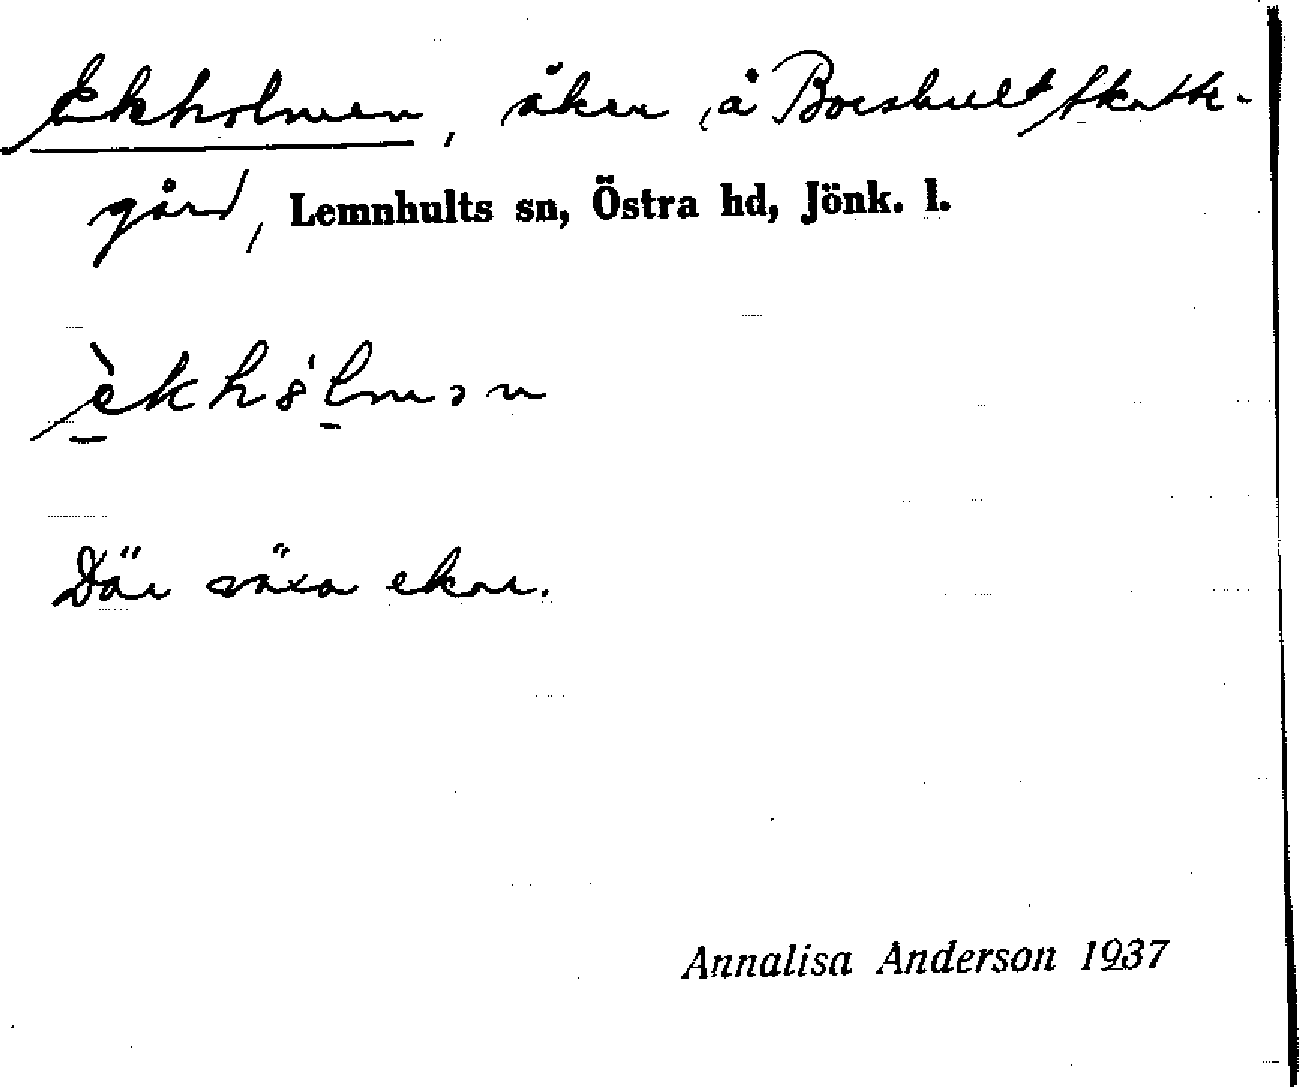 Ekholmen, åker å Boeshult Skatte-
gård, Lemnhults sn, Östra hd, Jönk. l.
Där växa ekar.
Annalisa Anderson 1937